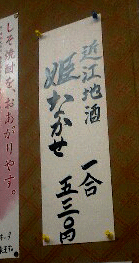 近江地酒
姫なかせ
一合
五三〇円
しそ焼酎を、おあがりやす。